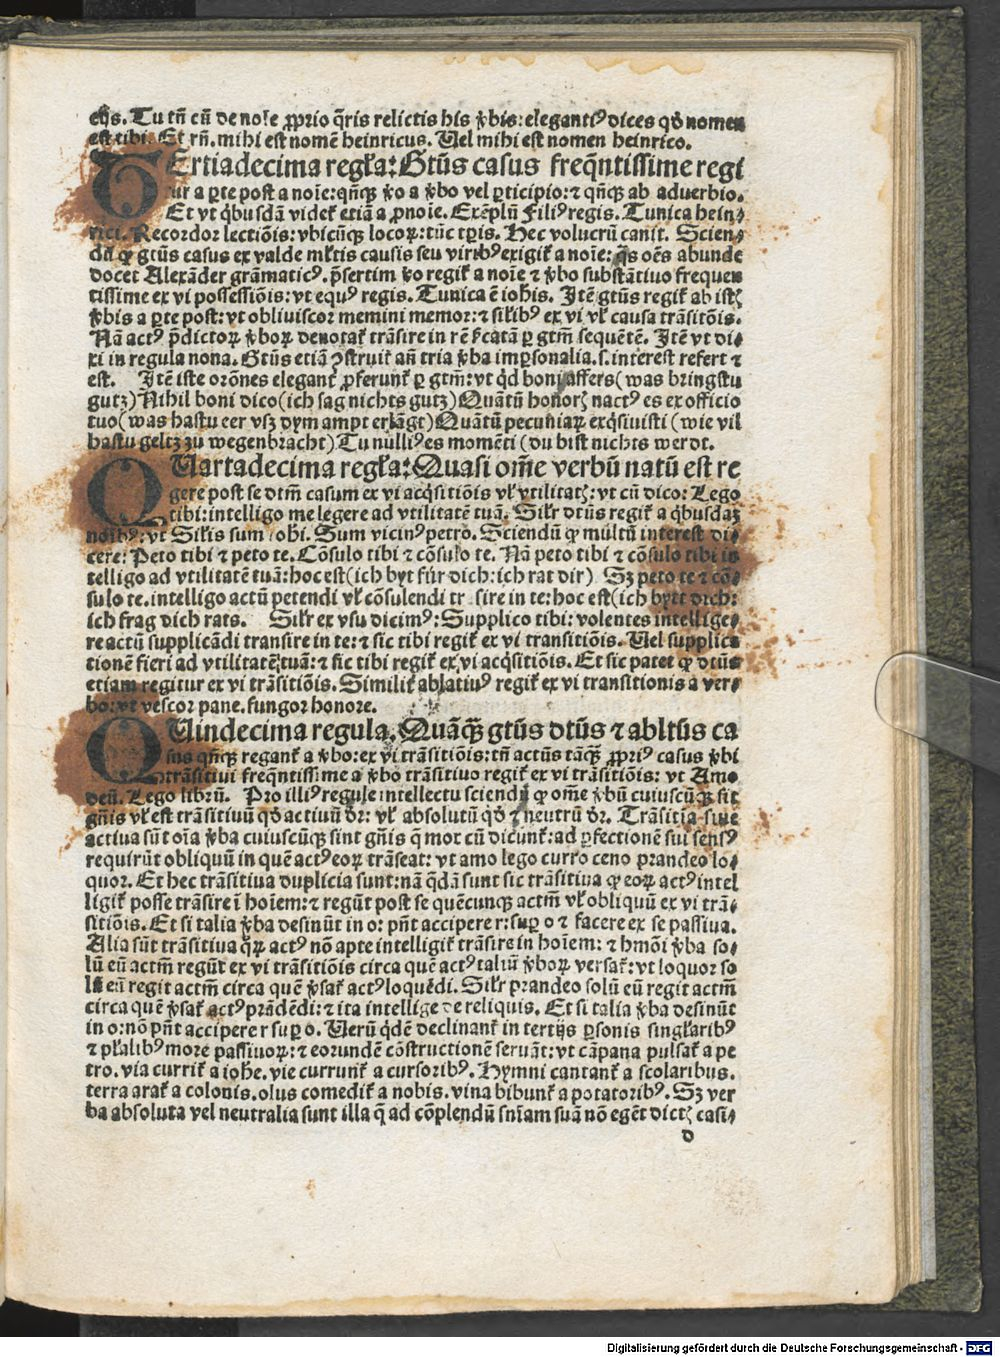 eijs. Tu tñ cũ de noīe ꝓprio q̄ris relictis his ꝟbis: elegantiꝰ dices qđ nomen
est tibi. Et rñ. mihi est nomē heinricus. Uel mihi est nomen heinrico.
TErtiadecima regl̄a: Gtũs casus freq̄ntissime regi
tur a ꝑte post a noīe: qñqꝫ ꝟo a ꝟbo vel ꝑticipio: ⁊ qñqꝫ ab aduerbio.
Et vt q̇busdā videt᷑ etiā a ꝓnoīe. Exēplũ Filiꝰ regis. Tunica hein⸗
rici. Recordor lectiōis: vbicũqꝫ locoꝝ: tũc tꝑis. Hec volucrũ canit. Scien⸗
dũ ꝙ gtũs casus ex valde ml̄tis causis seu viribꝰ exigit᷑ a noīe: q̄s oēs abunde
docet Alexāder grāmaticꝰ. p̄sertim ꝟo regit᷑ a noīe ⁊ ꝟbo substātiuo frequen
tissime ex vi possessiōis: vt equꝰ regis. Tunica ē iohis. Itē gtũs regit᷑ ab istꝭ
ꝟbis a ꝑte post: vt obliuiscor memini memor: ⁊ sil̄ibꝰ ex vi vl̄ causa trāsitōis.
Nā actꝰ p̄dictoꝝ ꝟboꝝ denotat᷑ trāsire in rē s̄catā ꝑ gtm̄ sequētē. Itē vt di⸗
xi in regula nona. Gtũs etiā ꝯstruit᷑ añ tria ꝟba imꝑsonalia. s. interest refert ⁊
est. Itē iste orōnes elegant᷑ ꝓferunt᷑ ꝑ gtm̄: vt q̇d boni affers (was bringstu
gutz) Nihil boni dico (ich sag nichts gutz) Quātũ honorꝭ nactꝰ es ex officio
tuo (was hastu eer vſz dym ampt erlāgt) Quātũ pecuniaꝝ exq̇siuisti (wie vil
hastu geltz zu wegen bracht) Tu nulliꝰ es momēti (du bist nichts werdt.
QUartadecima regl̄a: Quasi om̄e verbũ natũ est re
gere post se dtm̄ casum ex vi acq̇sitiōis vl̄ vtilitatꝭ: vt cũ dico: Lego
tibi: intelligo me legere ad vtilitatē tuā. Sil̄r dtũs regit᷑ a q̇busdaꝫ
noībꝰ: vt Sil̄is sum iohi. Sum vicinꝰ petro. Sciendũ ꝙ multũ interest di⸗
cere: Peto tibi ⁊ peto te. Cōsulo tibi ⁊ cōsulo te. Nā peto tibi ⁊ cōsulo tibi in
telligo ad vtilitatē tuā: hoc est (ich byt für dich: ich rat dir) Sꝫ peto te ⁊ cō⸗
sulo te. intelligo actũ petendi vl̄ cōsulendi tr sire in te: hoc est (ich bytt dich:
ich frag dich rats. Sil̄r ex vsu dicimꝰ: Supplico tibi: volentes intellige⸗
re actũ supplicādi transire in te: ⁊ sic tibi regit᷑ ex vi transitiōis. Uel supplica
tionē fieri ad vtilitatē tuā: ⁊ sic tibi regit᷑ ex vi acq̇sitiōis. Et sic patet ꝙ dtũs
etiam regitur ex vi trāsitiōis. Similit᷑ ablatiuꝰ regit᷑ ex vi transitionis a ver⸗
bo: vt vescor pane. fungor honore.
QUindecima regula. Quāqꝫ gtũs dtũs ⁊ abltũs ca
sus qñqꝫ regant᷑ a ꝟbo: ex vi trāsitiōis: tñ actũs tāqꝫ ꝓpriꝰ casus ꝟbi
trāsitiui freq̄ntissime a ꝟbo trāsitiuo regit᷑ ex vi trāsitiōis: vt Amo
deũ. Lego librũ. Pro illiꝰ regule intellectu sciendũ ꝙ om̄e ꝟbũ cuiuscũqꝫ sit
gñis vl̄ est trāsitiuũ qđ actiuũ dr̄: vl̄ absolutũ qđ ⁊ neutrũ dr̄. Trāsitia siue
actiua sũt oīa ꝟba cuiuscũqꝫ sint gñis q̄ mox cũ dicunt᷑: ad ꝑfectionē sui sensꝰ
requirũt obliquũ in quē actꝰ eoꝝ trāseat: vt amo lego curro ceno prandeo lo⸗
quor. Et hec trāsitiua duplicia sunt: nā q̄dā sunt sic trāsitiua ꝙ eoꝝ actꝰ intel
ligit᷑ posse trāsire ī hoīem: ⁊ regũt post se quēcunqꝫ actm̄ vl̄ obliquũ ex vi trā⸗
sitiōis. Et si talia ꝟba desinũt in o: pñt accipere r: suꝑ o ⁊ facere ex se passiua.
Alia sũt trāsitiua qꝝ actꝰ nō apte intelligit᷑ trāsire in hoīem: ⁊ hmōi ꝟba so⸗
lũ eũ actm̄ regũt ex vi trāsitiōis circa quē actꝰ taliũ ꝟboꝝ versat᷑: vt loquor so
lũ eũ regit actm̄ circa quē ꝟsat᷑ actꝰ loquēdi. Sil̄r prandeo solũ eũ regit actm̄
circa quē ꝟsat᷑ actꝰ prādēdi: ⁊ ita intellige de reliquis. Et si talia ꝟba desinũt
in o: nō pñt accipere r suꝑ o. Uerũ q̇dē declinant᷑ in tertijs ꝑsonis singl̄aribꝰ
⁊ pl̄alibꝰ more passiuoꝝ: ⁊ eorundē cōstructionē seruāt: vt cāpana pulsat᷑ a pe
tro. via currit᷑ a iohe. vie currunt᷑ a cursoribꝰ. Hymni cantant᷑ a scolaribus.
terra arat᷑ a colonis. olus comedit᷑ a nobis. vina bibunt᷑ a potatoribꝰ. Sꝫ ver
ba absoluta vel neutralia sunt illa q̄ ad cōplendũ snīam suā nō egēt dictꝭ casi⸗
d
Digitalisierung gefördert durch die Deutsche Forschungsgemeinschaft - DFG